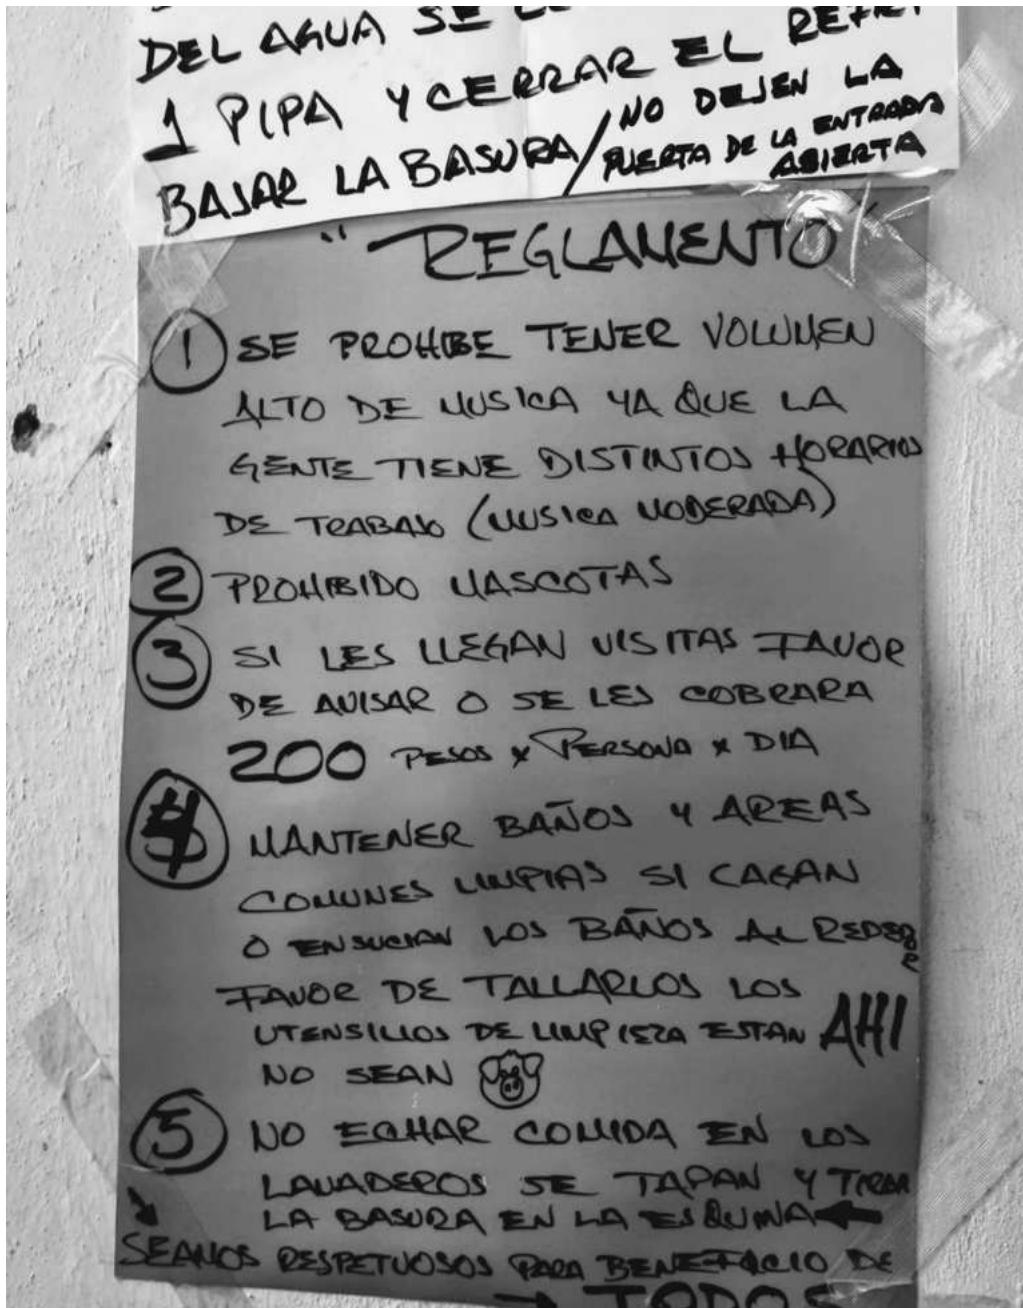 DEL AGUA SE
1 PIPA Y CERRAR EL
BAJAR LA BASURA / NO DEJEN LA
PUERTA DE LA ENTRADA
ABIERTA
"REGLAMENTO"
1 SE PROHIBE TENER VOLUMEN
ALTO DE MUSICA YA QUE LA
GENTE TIENE DISTINTOS HORARIOS
DE TRABAJO (MUSICA MODERADA)
2 PROHIBIDO MASCOTAS
3 SI LES LLEGAN VISITAS FAVOR
DE AVISAR O SE LES COBRARA
200 PESOS x PERSONA x DIA
4 MANTENER BAÑOS Y AREAS
COMUNES LIMPIAS SI CAGAN
O ENSUCIAN LOS BAÑOS AL REDEDOR
FAVOR DE TALLARLOS LOS
UTENSILIOS DE LIMPIEZA ESTAN AHI
NO SEAN
5 NO ECHAR COMIDA EN LOS
LAVADEROS SE TAPAN Y TIRAR
LA BASURA EN LA ESQUINA ←
SEAMOS RESPETUOSOS PARA BENEFICIO DE
→ TODOS